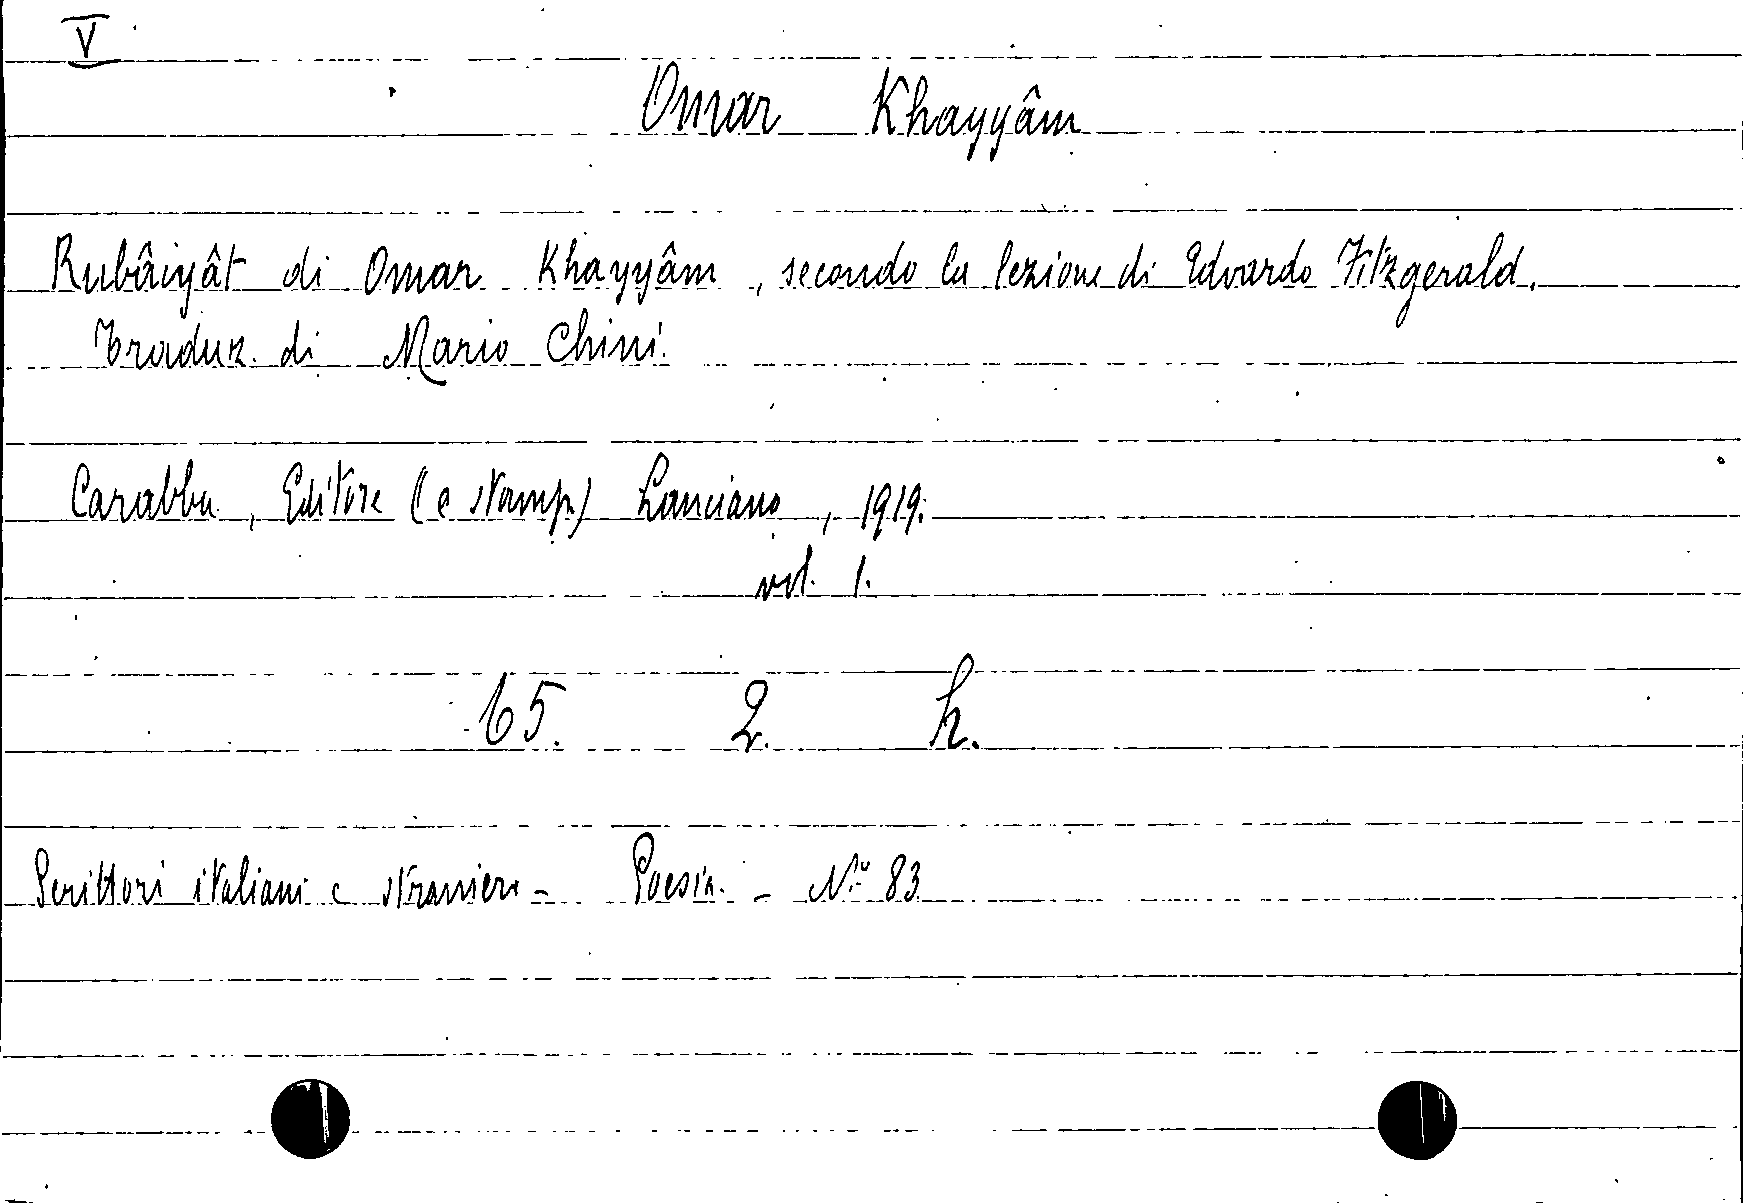 V
Omar Khayyâm
Rubâiyât di Omar Khayyâm, secondo la lezione di Edoardo Fitzgerald.
Traduz. di Mario Chini.
Carabba, Editore (e stamp) Lanciano, 1919.
vol. 1.
65. 2. h.
Scrittori italiani e stranieri - Poesia. - N.º 83